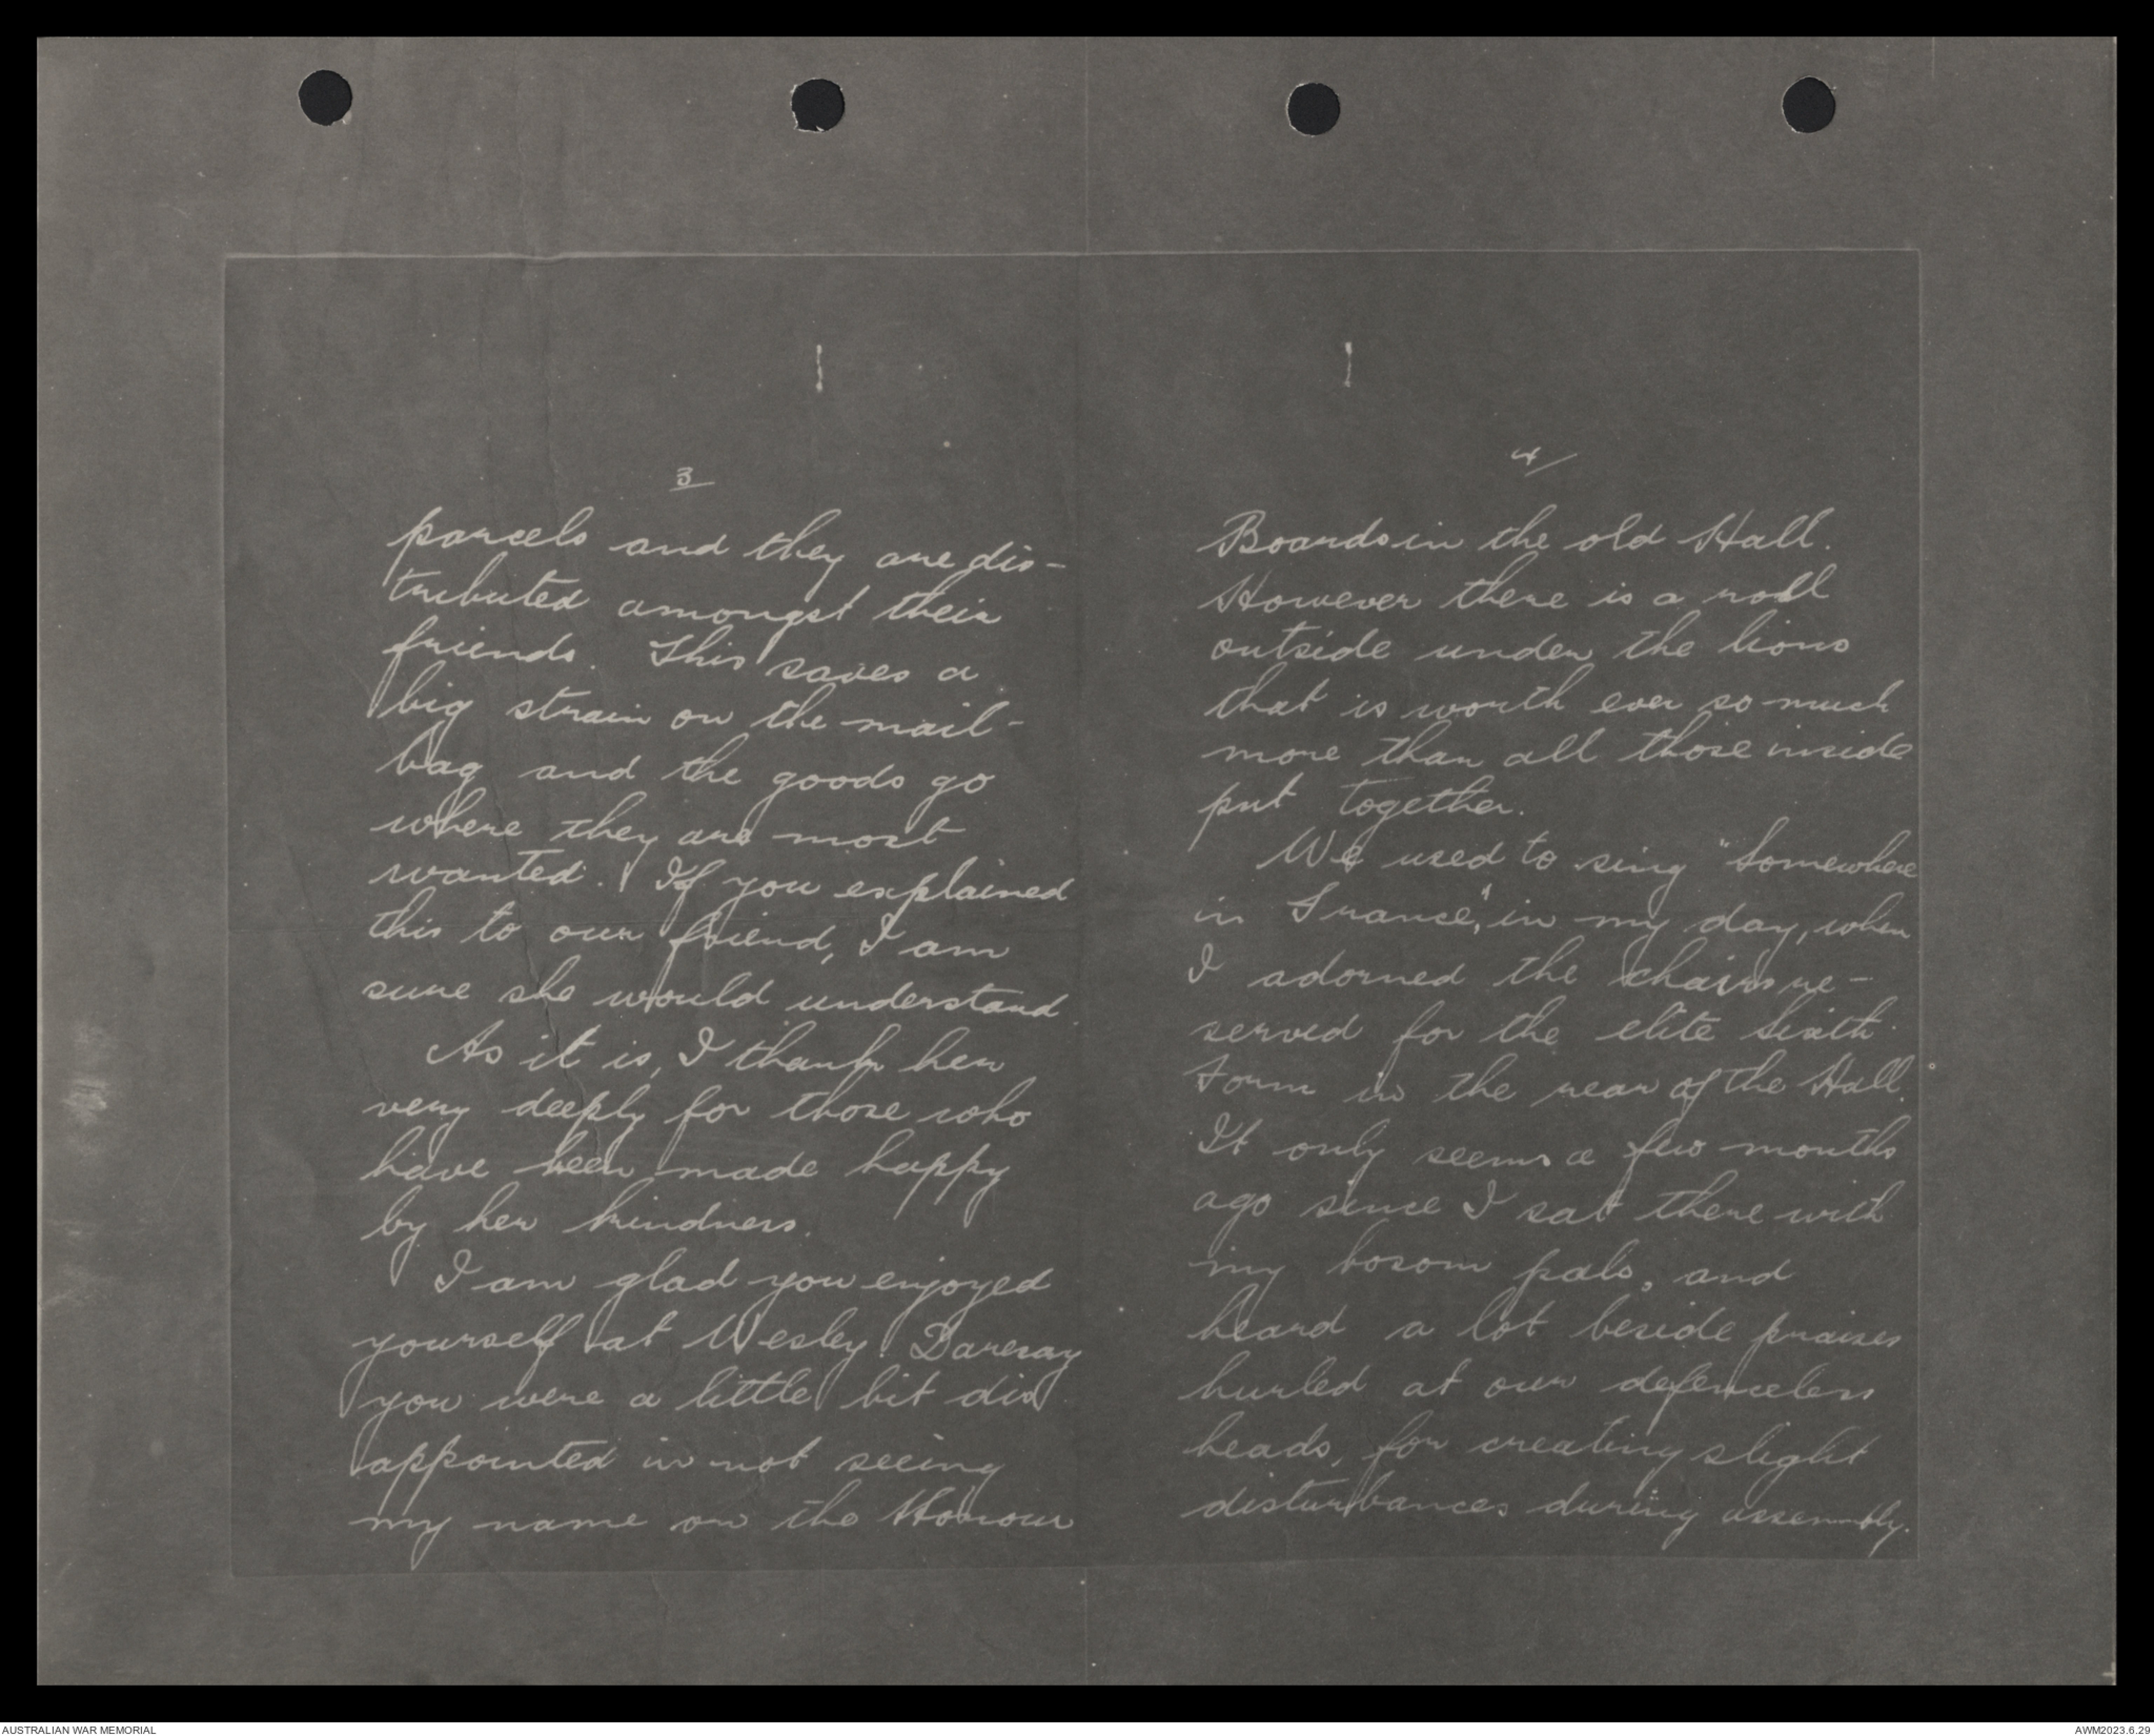 3
parcels and they are dis-
tributed amongst their
friends. This saves a
big strain on the mail-
bag and the goods go
where they are most
wanted. If you explained
this to our friend, I am
sure she would understand.
As it is, I thank her
very deeply for those who
have been made happy
by her kindness.
I am glad you enjoyed
yourself at Wesley. Daresay
you were a little bit dis
appointed in not seeing
my name on the Honour
4
Boards in the old Hall.
However there is a roll
outside under the lions
that is worth ever so much
more than all those inside
put together.
We used to sing "Somewhere
in France", in my day, when
I adorned the chairs re-
served for the elite Sixth
Form in the rear of the Hall.
It only seems a few months
ago since I sat there with
my bosom pals, and
heard a lot beside praises
hurled at our defenceless
heads, for creating slight
disturbances during assembly.
AUSTRALIAN WAR MEMORIAL
AWM2023.6.29